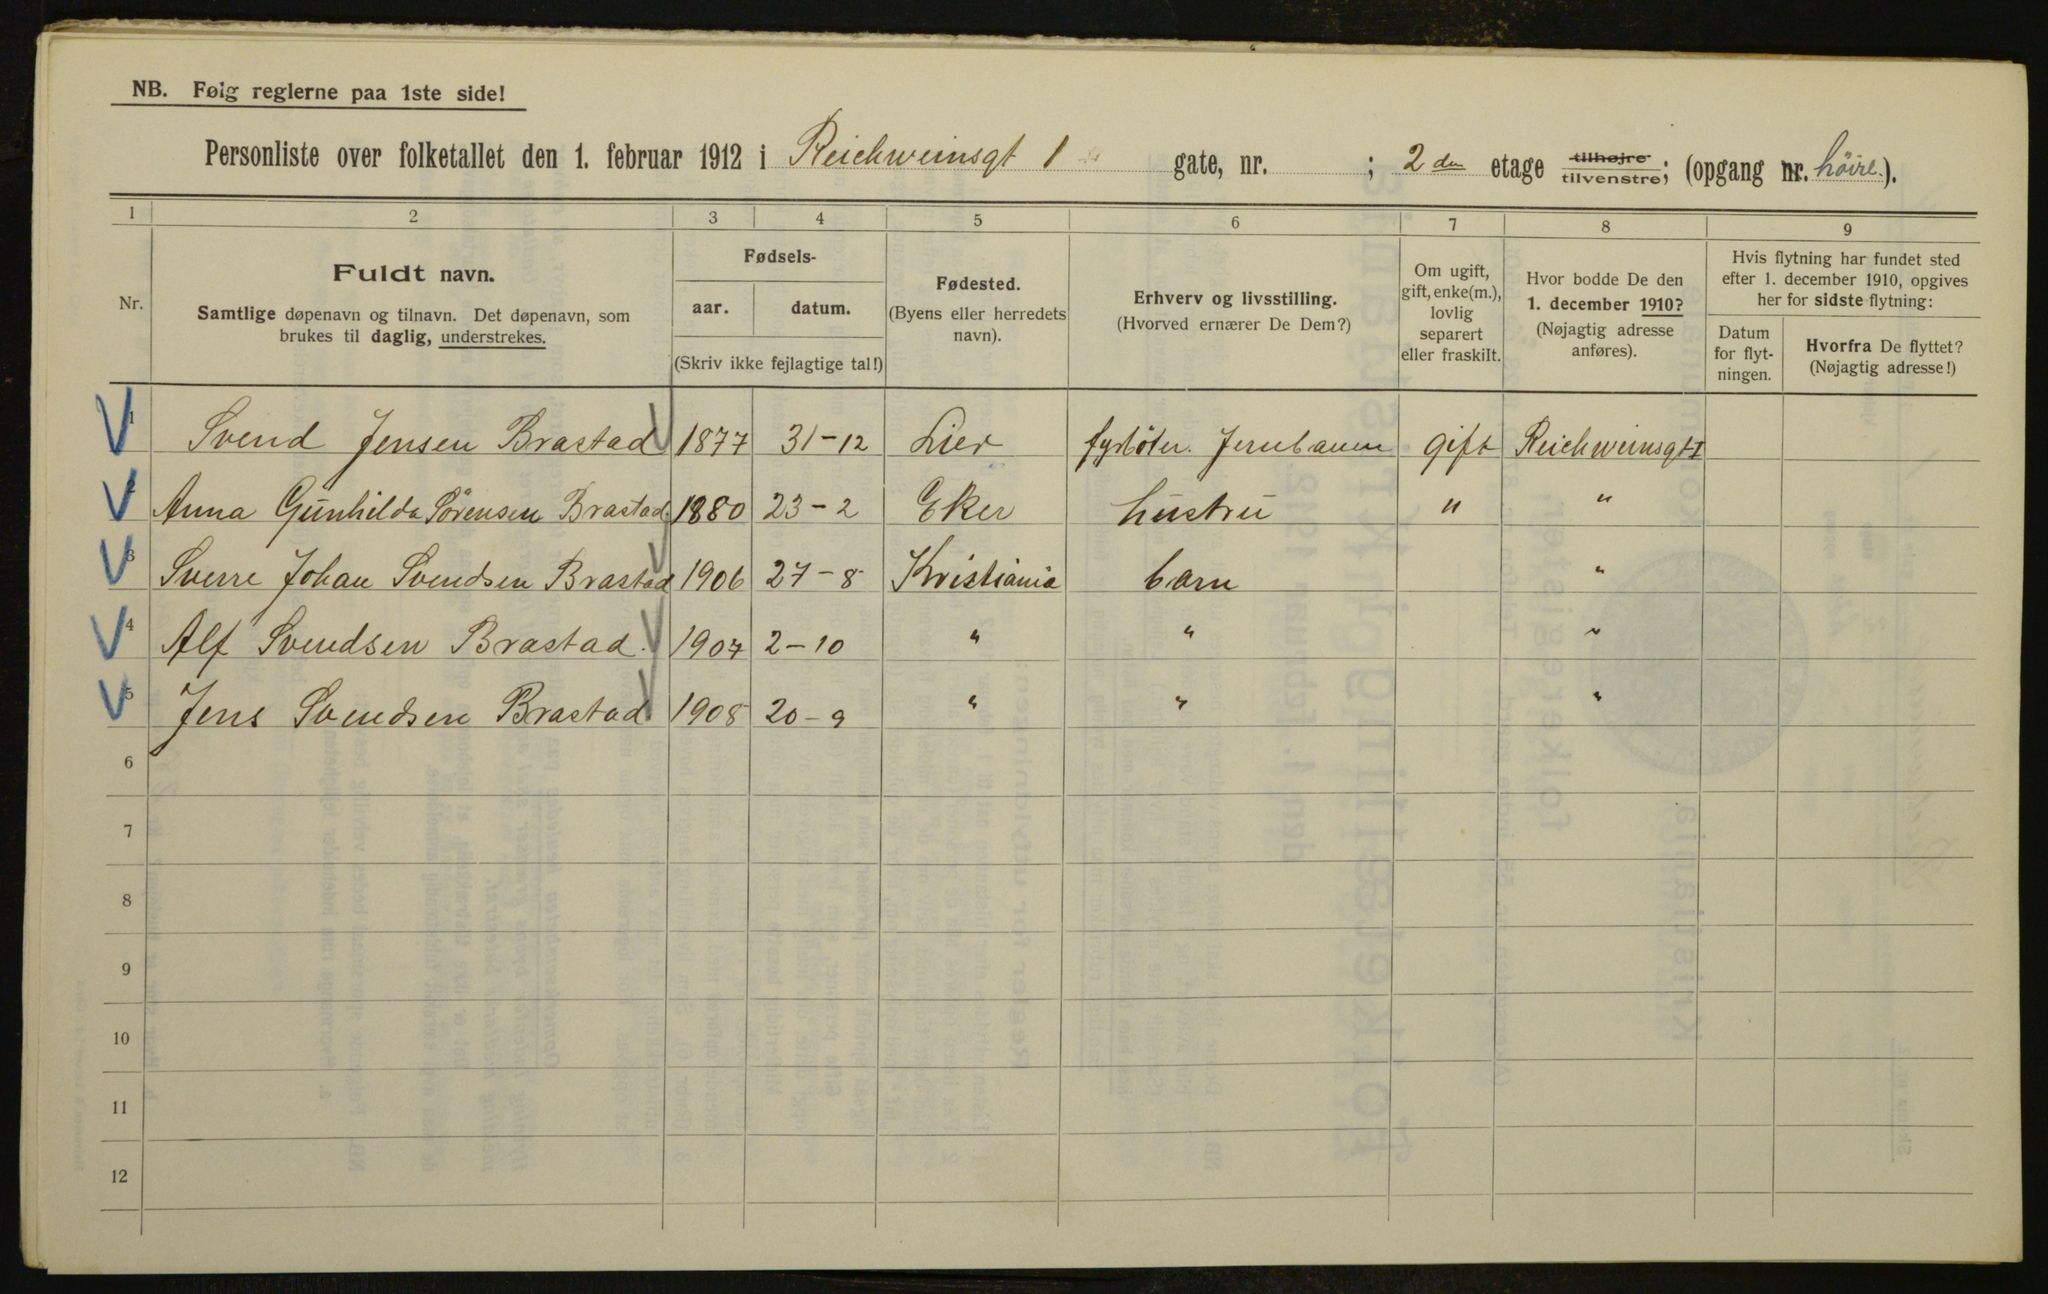 NB. Følg reglerne paa 1ste side!
Personliste over folketallet den 1. februar 1912 i Reichweinsgt 1 gate, nr. ; 2den etage tilhøjre tilvenstre; (opgang nr. høire.).
1 2 3 4 5 6 7 8 9
Nr.
Fuldt navn.
Samtlige døpenavn og tilnavn. Det døpenavn, som
brukes til daglig, understrekes.
Fødsels-
aar. datum.
(Skriv ikke fejlagtige tal!)
Fødested.
(Byens eller herredets
navn).
Erhverv og livsstilling.
(Hvorved ernærer De Dem?)
Om ugift,
gift, enke(m.),
lovlig
separert
eller fraskilt.
Hvor bodde De den
1. december 1910?
(Nøjagtig adresse
anføres).
Hvis flytning har fundet sted
efter 1. december 1910, opgives
her for sidste flytning:
Datum
for flyt-
ningen.
Hvorfra De flyttet?
(Nøjagtig adresse!)
1 Svend Jensen Brastad 1877 31-12 Lier fyrbøter. Jernbanen gift Reichweinsgt I
2 Anna Gunhilda Sörensen Brastad 1880 23-2 Eker hustru " "
3 Sverre Johan Svendsen Brastad 1906 27-8 Kristiania barn "
4 Alf Svendsen Brastad. 1907 2-10 " " "
5 Jens Svendsen Brastad 1908 20-9 " " "
6
7
8
9
10
11
12